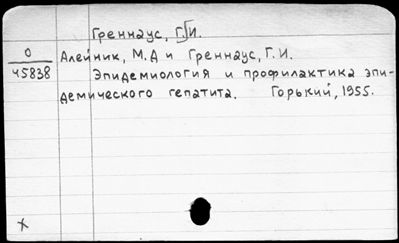 Греннаус, Г.И.
О
45838
Алейник, М.Д и Греннаус, Г.И.
Эпидемиология и профилактика эпи-
демического гепатита. Горький, 1955.
x